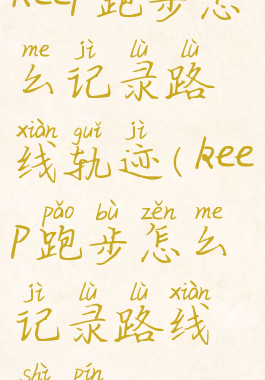 keep跑步怎
me jì lù lù
么记录路
xiàn guǐ jì
线轨迹(kee
pǎo bù zěn me
p跑步怎么
jì lù lù xiàn
记录路线
shì pín